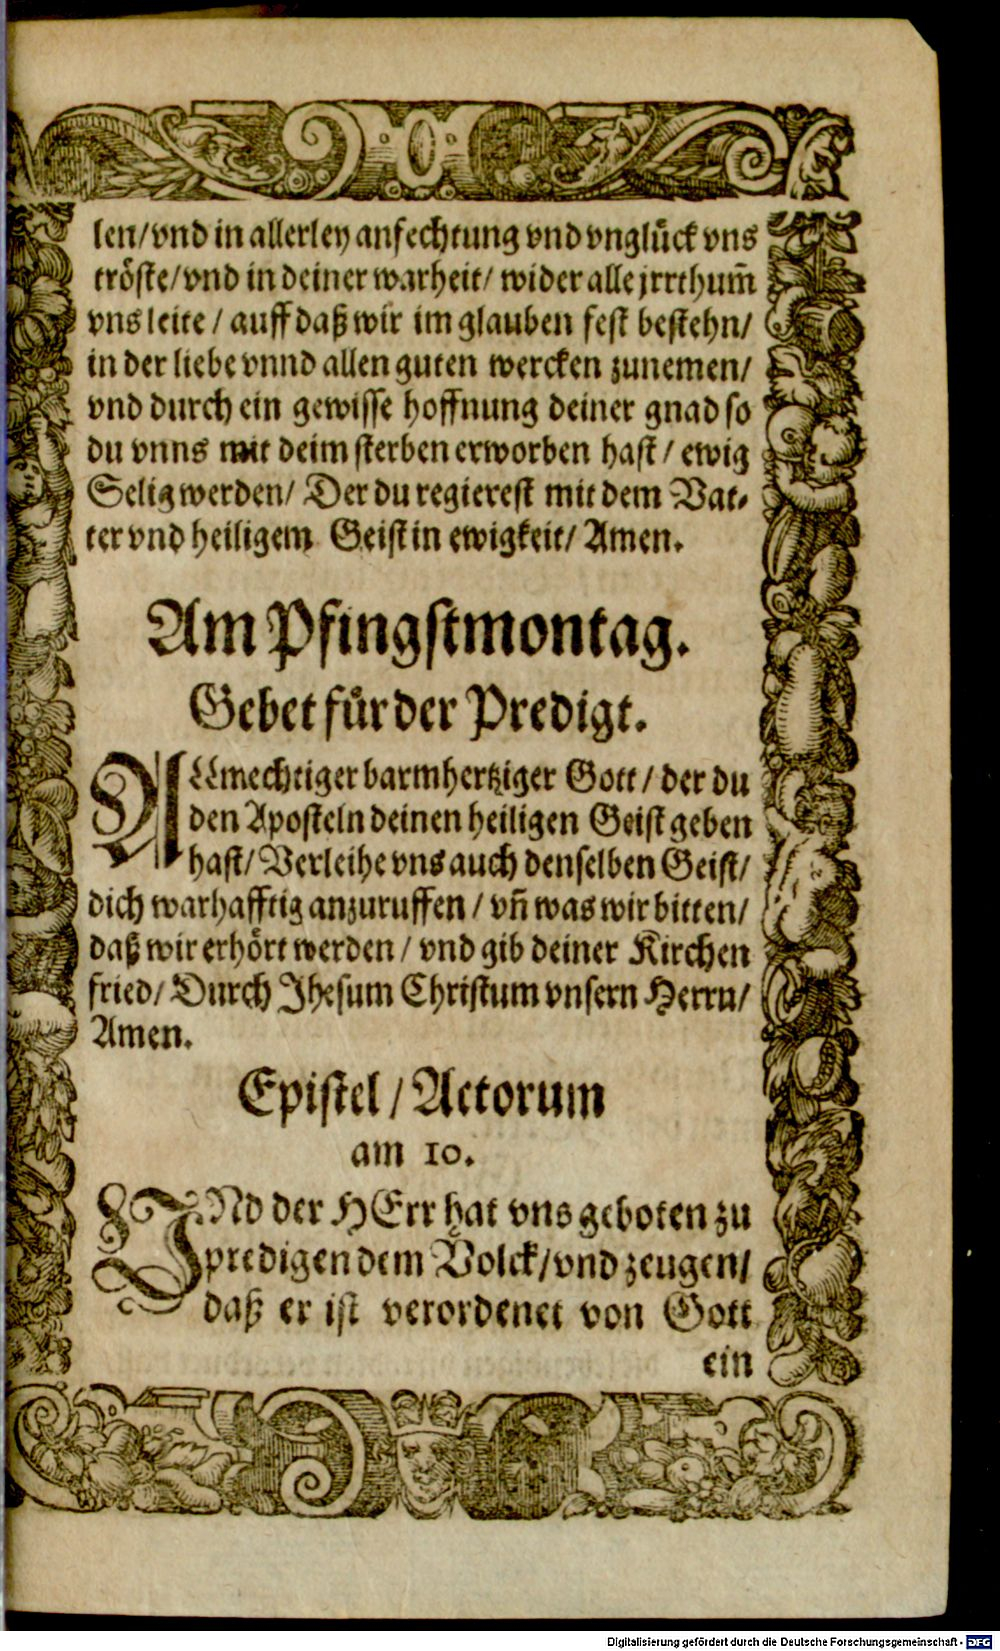 len/vnd in allerley anfechtung vnd vnglück vns
tröste/vnd in deiner warheit/ wider alle jrrthum̃
vns leite / auff daß wir im glauben fest bestehn/
in der liebe vnnd allen guten wercken zunemen/
vnd durch ein gewisse hoffnung deiner gnad so
du vnns mit deim sterben erworben hast / ewig
Selig werden/ Der du regierest mit dem Vat-
ter vnd heiligem Geist in ewigkeit/ Amen.
Am Pfingstmontag.
Gebet für der Predigt.
ALlmechtiger barmhertziger Gott / der du
den Aposteln deinen heiligen Geist geben
hast/ Verleihe vns auch denselben Geist/
dich warhafftig anzuruffen / vñ was wir bitten/
daß wir erhört werden / vnd gib deiner Kirchen
fried/ Durch Jhesum Christum vnsern Herrn/
Amen.
Epistel / Actorum
am 10.
VNd der HErr hat vns geboten zu
predigen dem Volck/vnd zeugen/
daß er ist verordenet von Gott
ein
Digitalisierung gefördert durch die Deutsche Forschungsgemeinschaft - DFG